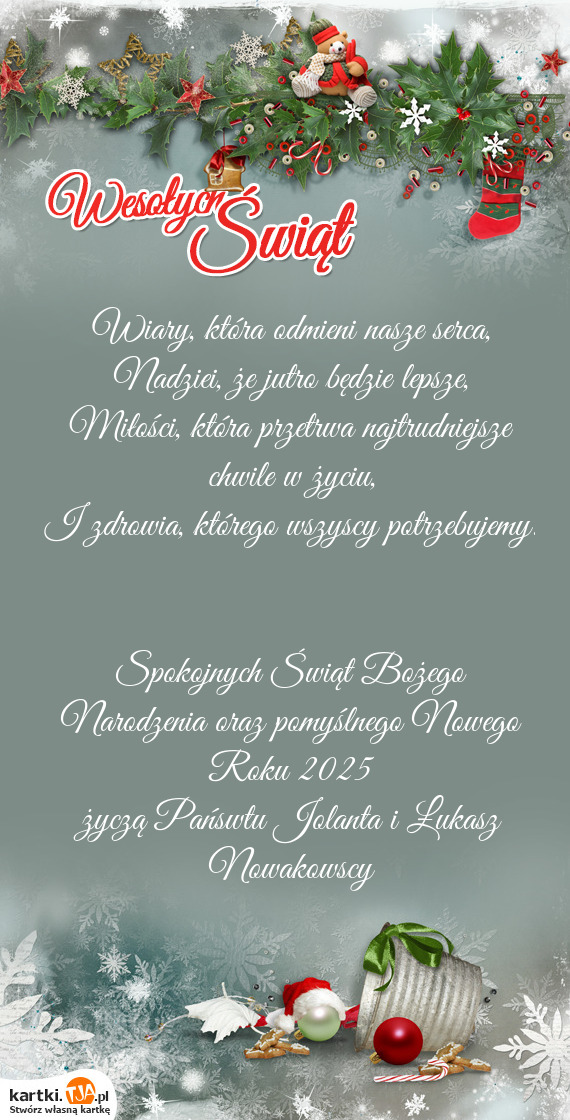 Wesołych
Świąt
Wiary, która odmieni nasze serca,
Nadziei, że jutro będzie lepsze,
Miłości, która przetrwa najtrudniejsze
chwile w życiu,
I zdrowia, którego wszyscy potrzebujemy.
Spokojnych Świąt Bożego
Narodzenia oraz pomyślnego Nowego
Roku 2025
życzą Pańswtu Jolanta i Łukasz
Nowakowscy
kartki.TJA.pl
Stwórz własną kartkę